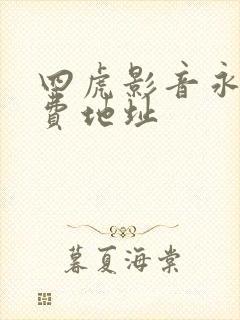 四虎影音永
費地址
暮夏海棠